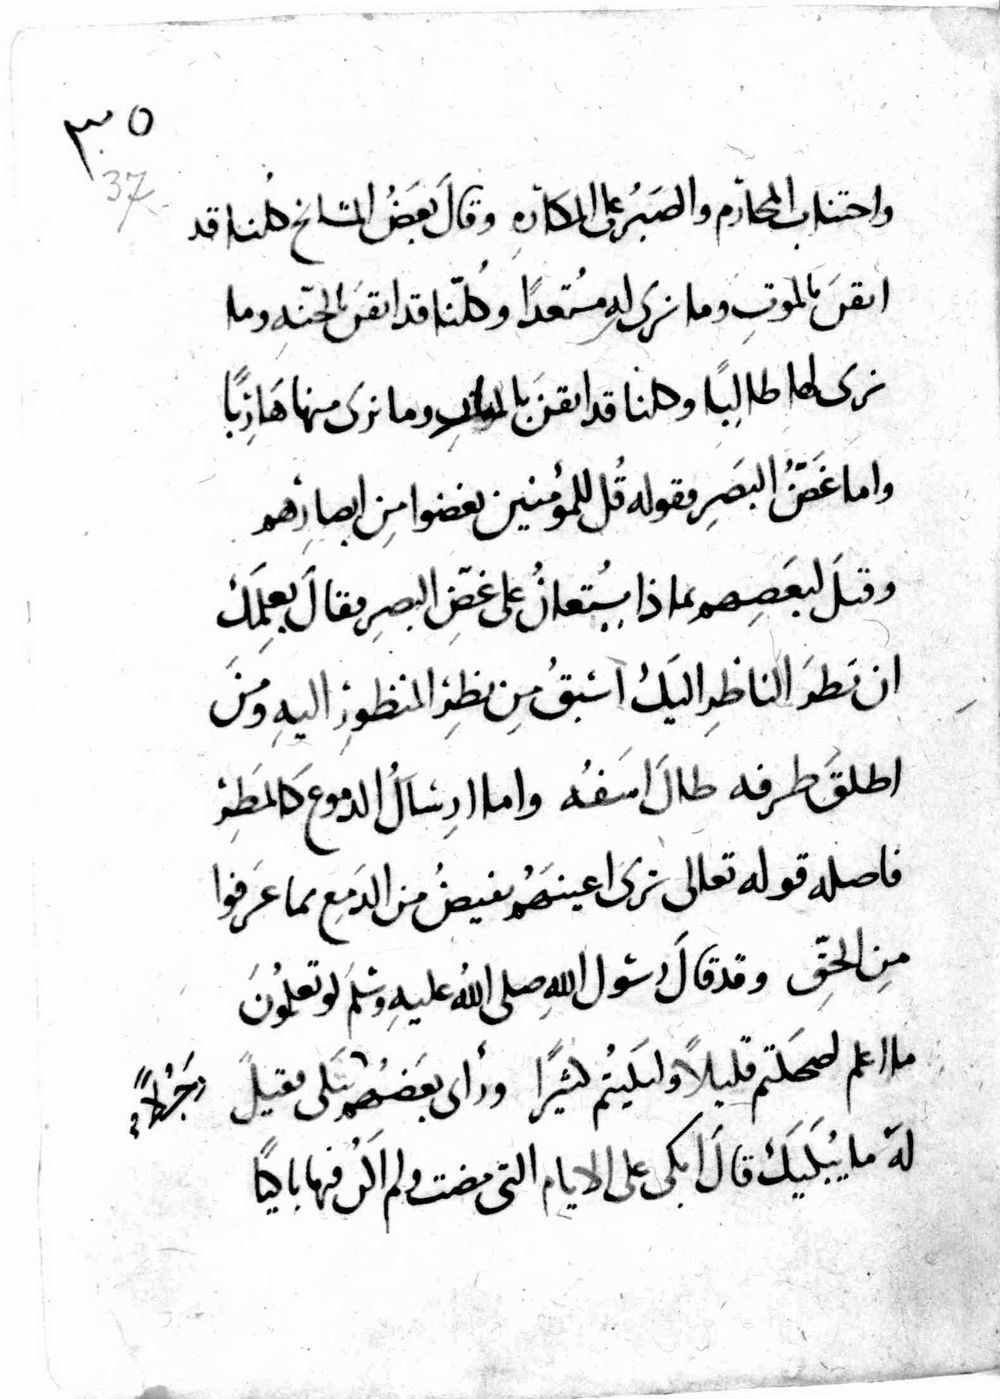 ٣٥
37
واجتناب المحارم والصَبْرُ على المكارِه وقالَ بَعضُ المشايخ كلنا قد
ايقنَ بالموتِ وما نرى له مُستعدًا وكُلّنا قد ايقنَ بالجنّه وما
نرى لها طالِبًا وكلنا قد ايقنَ وما نرى منها هَارِبًا
واما غَضُّ البَصَرِ فقوله قُل للمؤمنين يغضوا مِن ابصارهم
وقيلَ لبَعضِهم بماذا يُستعانُ على غضِّ البصرِ فقالَ بعِلمِكَ
ان نَظرَ الناظرِ اليكَ اسْبقُ مِن نظرِ المنظورِ اليهِ ومَن
اطلقَ طرفه طالَ اسَفُه واما ارسَالُ الدموع كالمَطرِ
فاصله قوله تعالى ترى اعينَهُم تفيضُ من الدَمعِ مما عَرفوا
مِن الحقِّ وقد قالَ رسُول اللهِ صلى اللهُ عليهِ وسَلمَ لو تعلمُونَ
ما اعلم لضحكتم قليلاً ولبكيتُم كثيرًا ورأى بعَضُهُم رَجُلاً يَبكى فقيلَ
لهُ ما يُبكيكَ قالَ ابكى على الايام التى مضت ولم اكُن فيها باكيًا